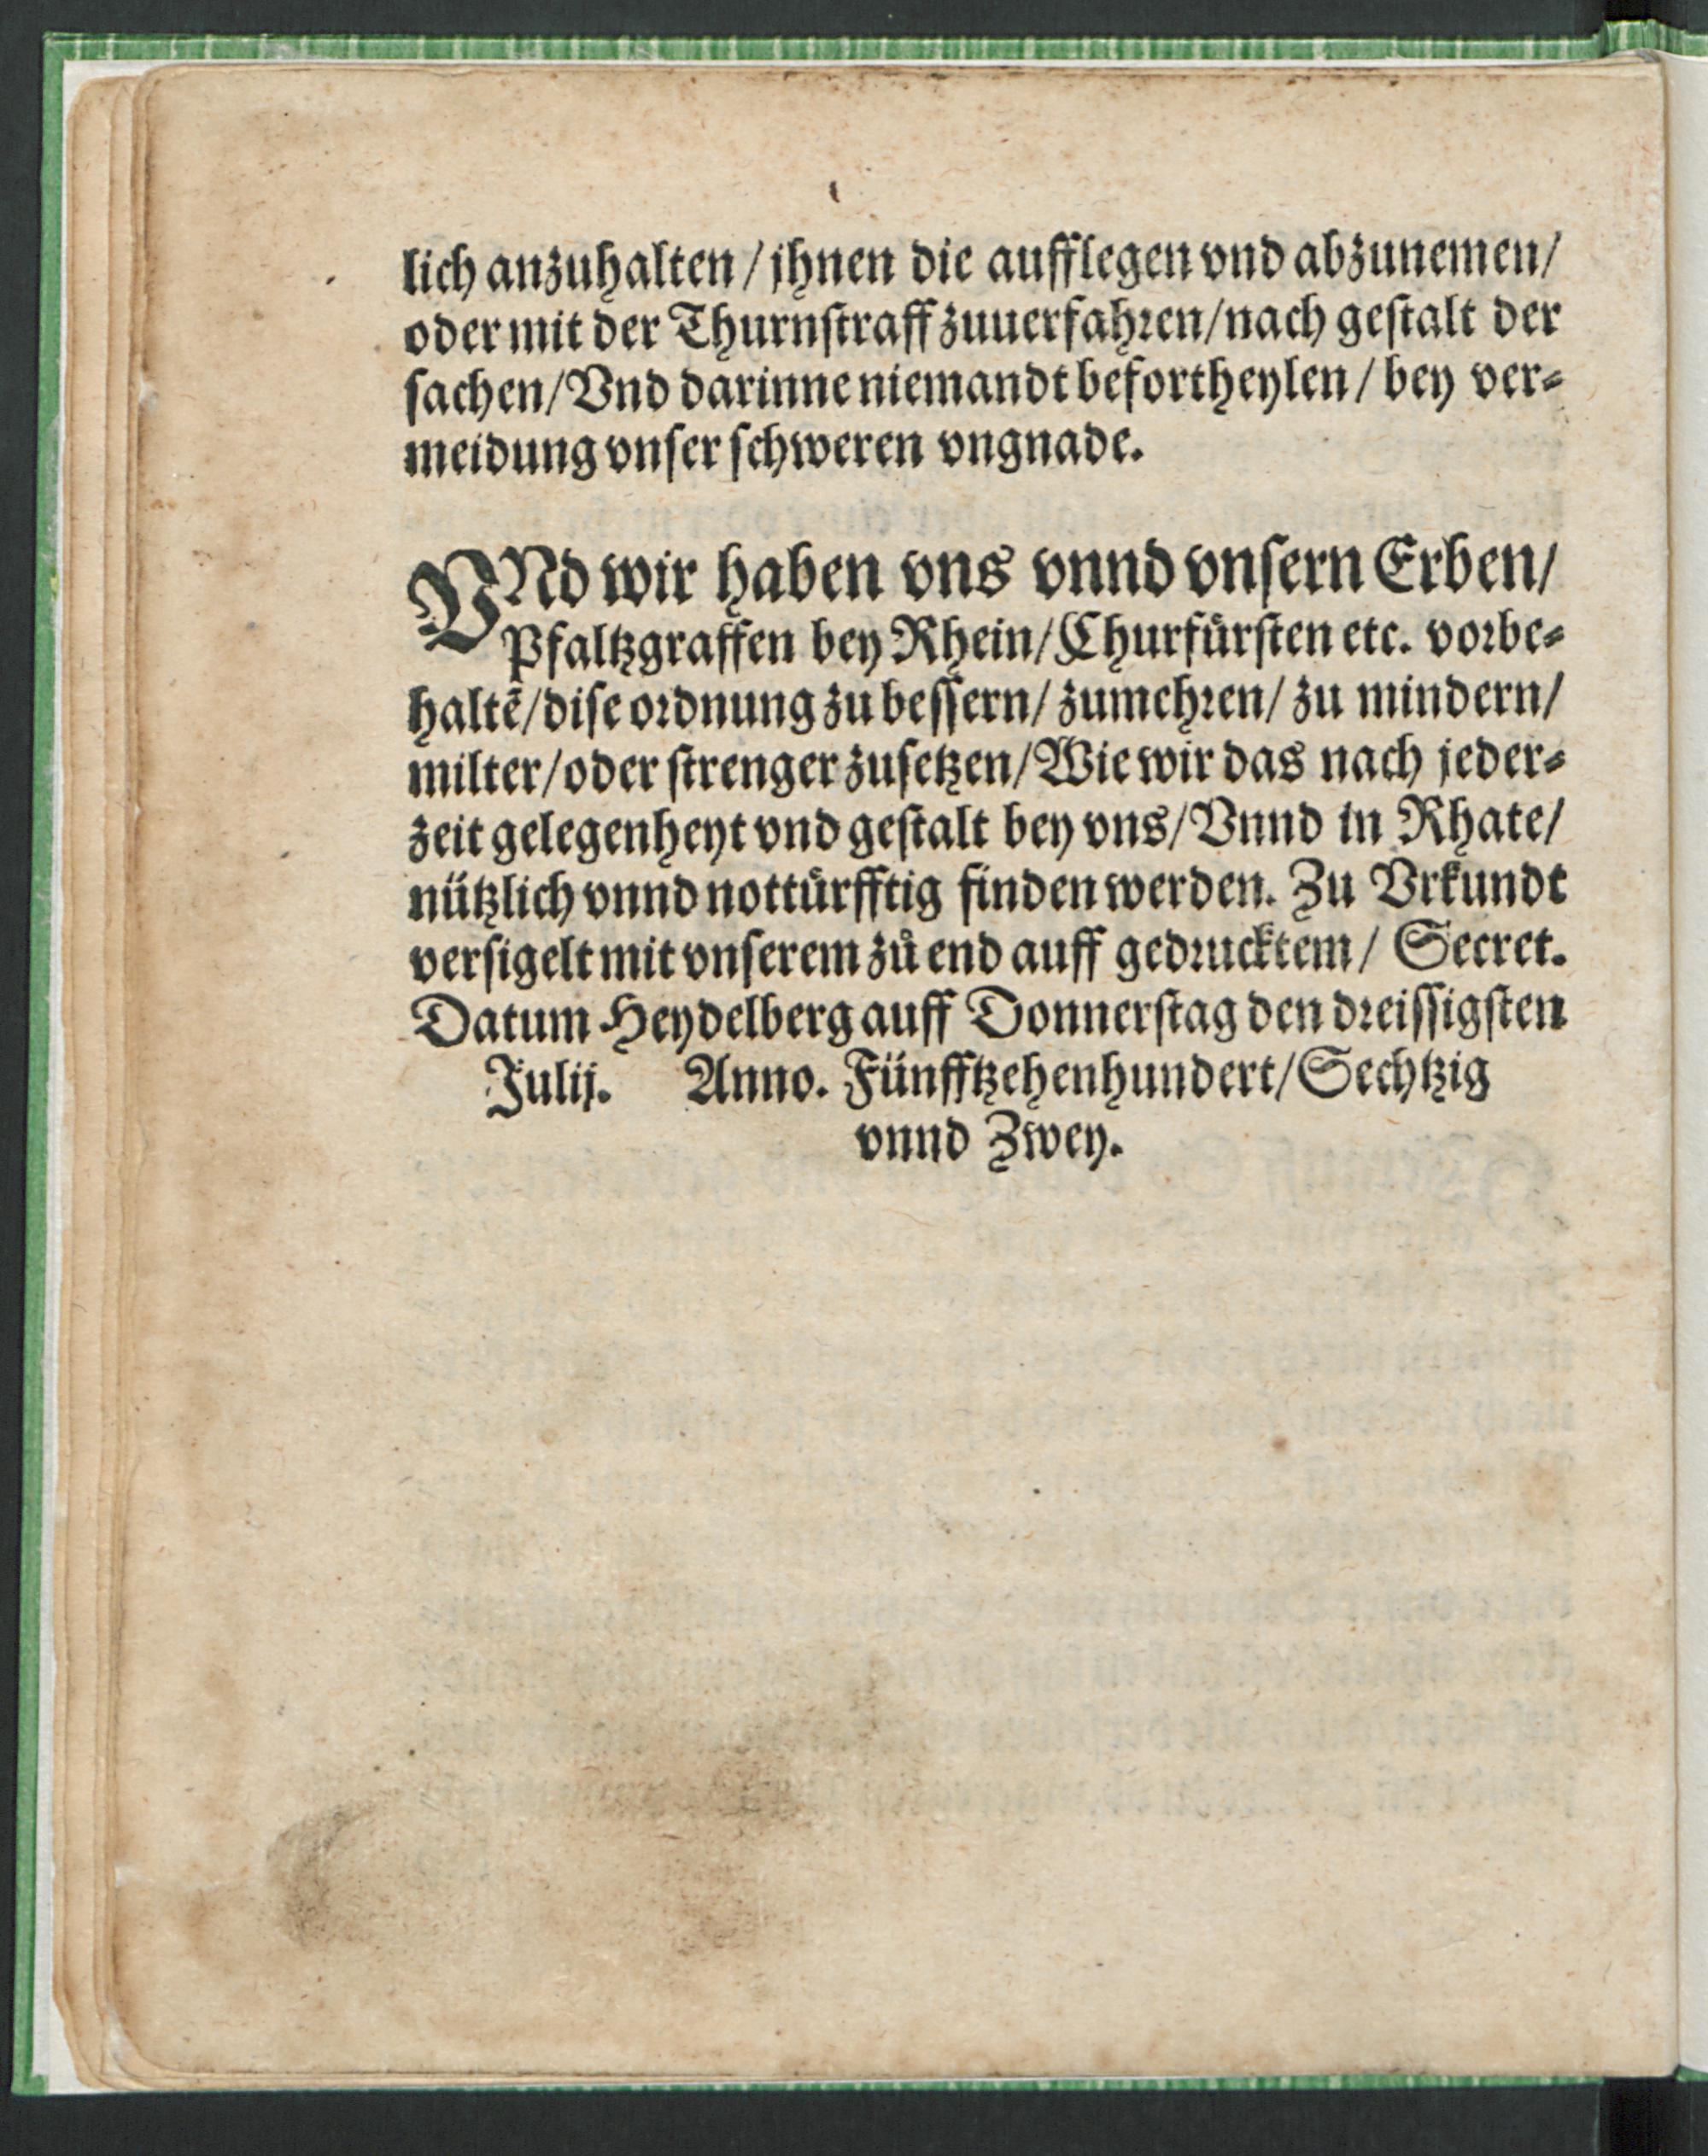 lich anzuhalten / jhnen die aufflegen vnd abzunemen /
oder mit der Thurnſtraff zuuerfahꝛen / nach geſtalt der
ſachen / Vnd darinne niemandt befortheylen / bey ver⸗
meidung vnſer ſchweren vngnade.
VNd wir haben vns vnnd vnſern Erben /
Pfaltzgraffen bey Rhein / Churfürſten etc. voꝛbe⸗
haltē / diſe oꝛdnung zu beſſern / zumehꝛen / zu mindern /
milter / oder ſtrenger zuſetzen / Wie wir das nach jeder⸗
zeit gelegenheyt vnd geſtalt bey vns / Vnnd in Rhate /
nützlich vnnd nottürfftig finden werden. Zu Vrkundt
verſigelt mit vnſerem zů end auff gedꝛucktem / Secret.
Datum Heydelberg auff Donnerſtag den dꝛeiſſigſten
Julij. Anno. Fünfftzehenhundert / Sechtzig
vnnd Zwey.